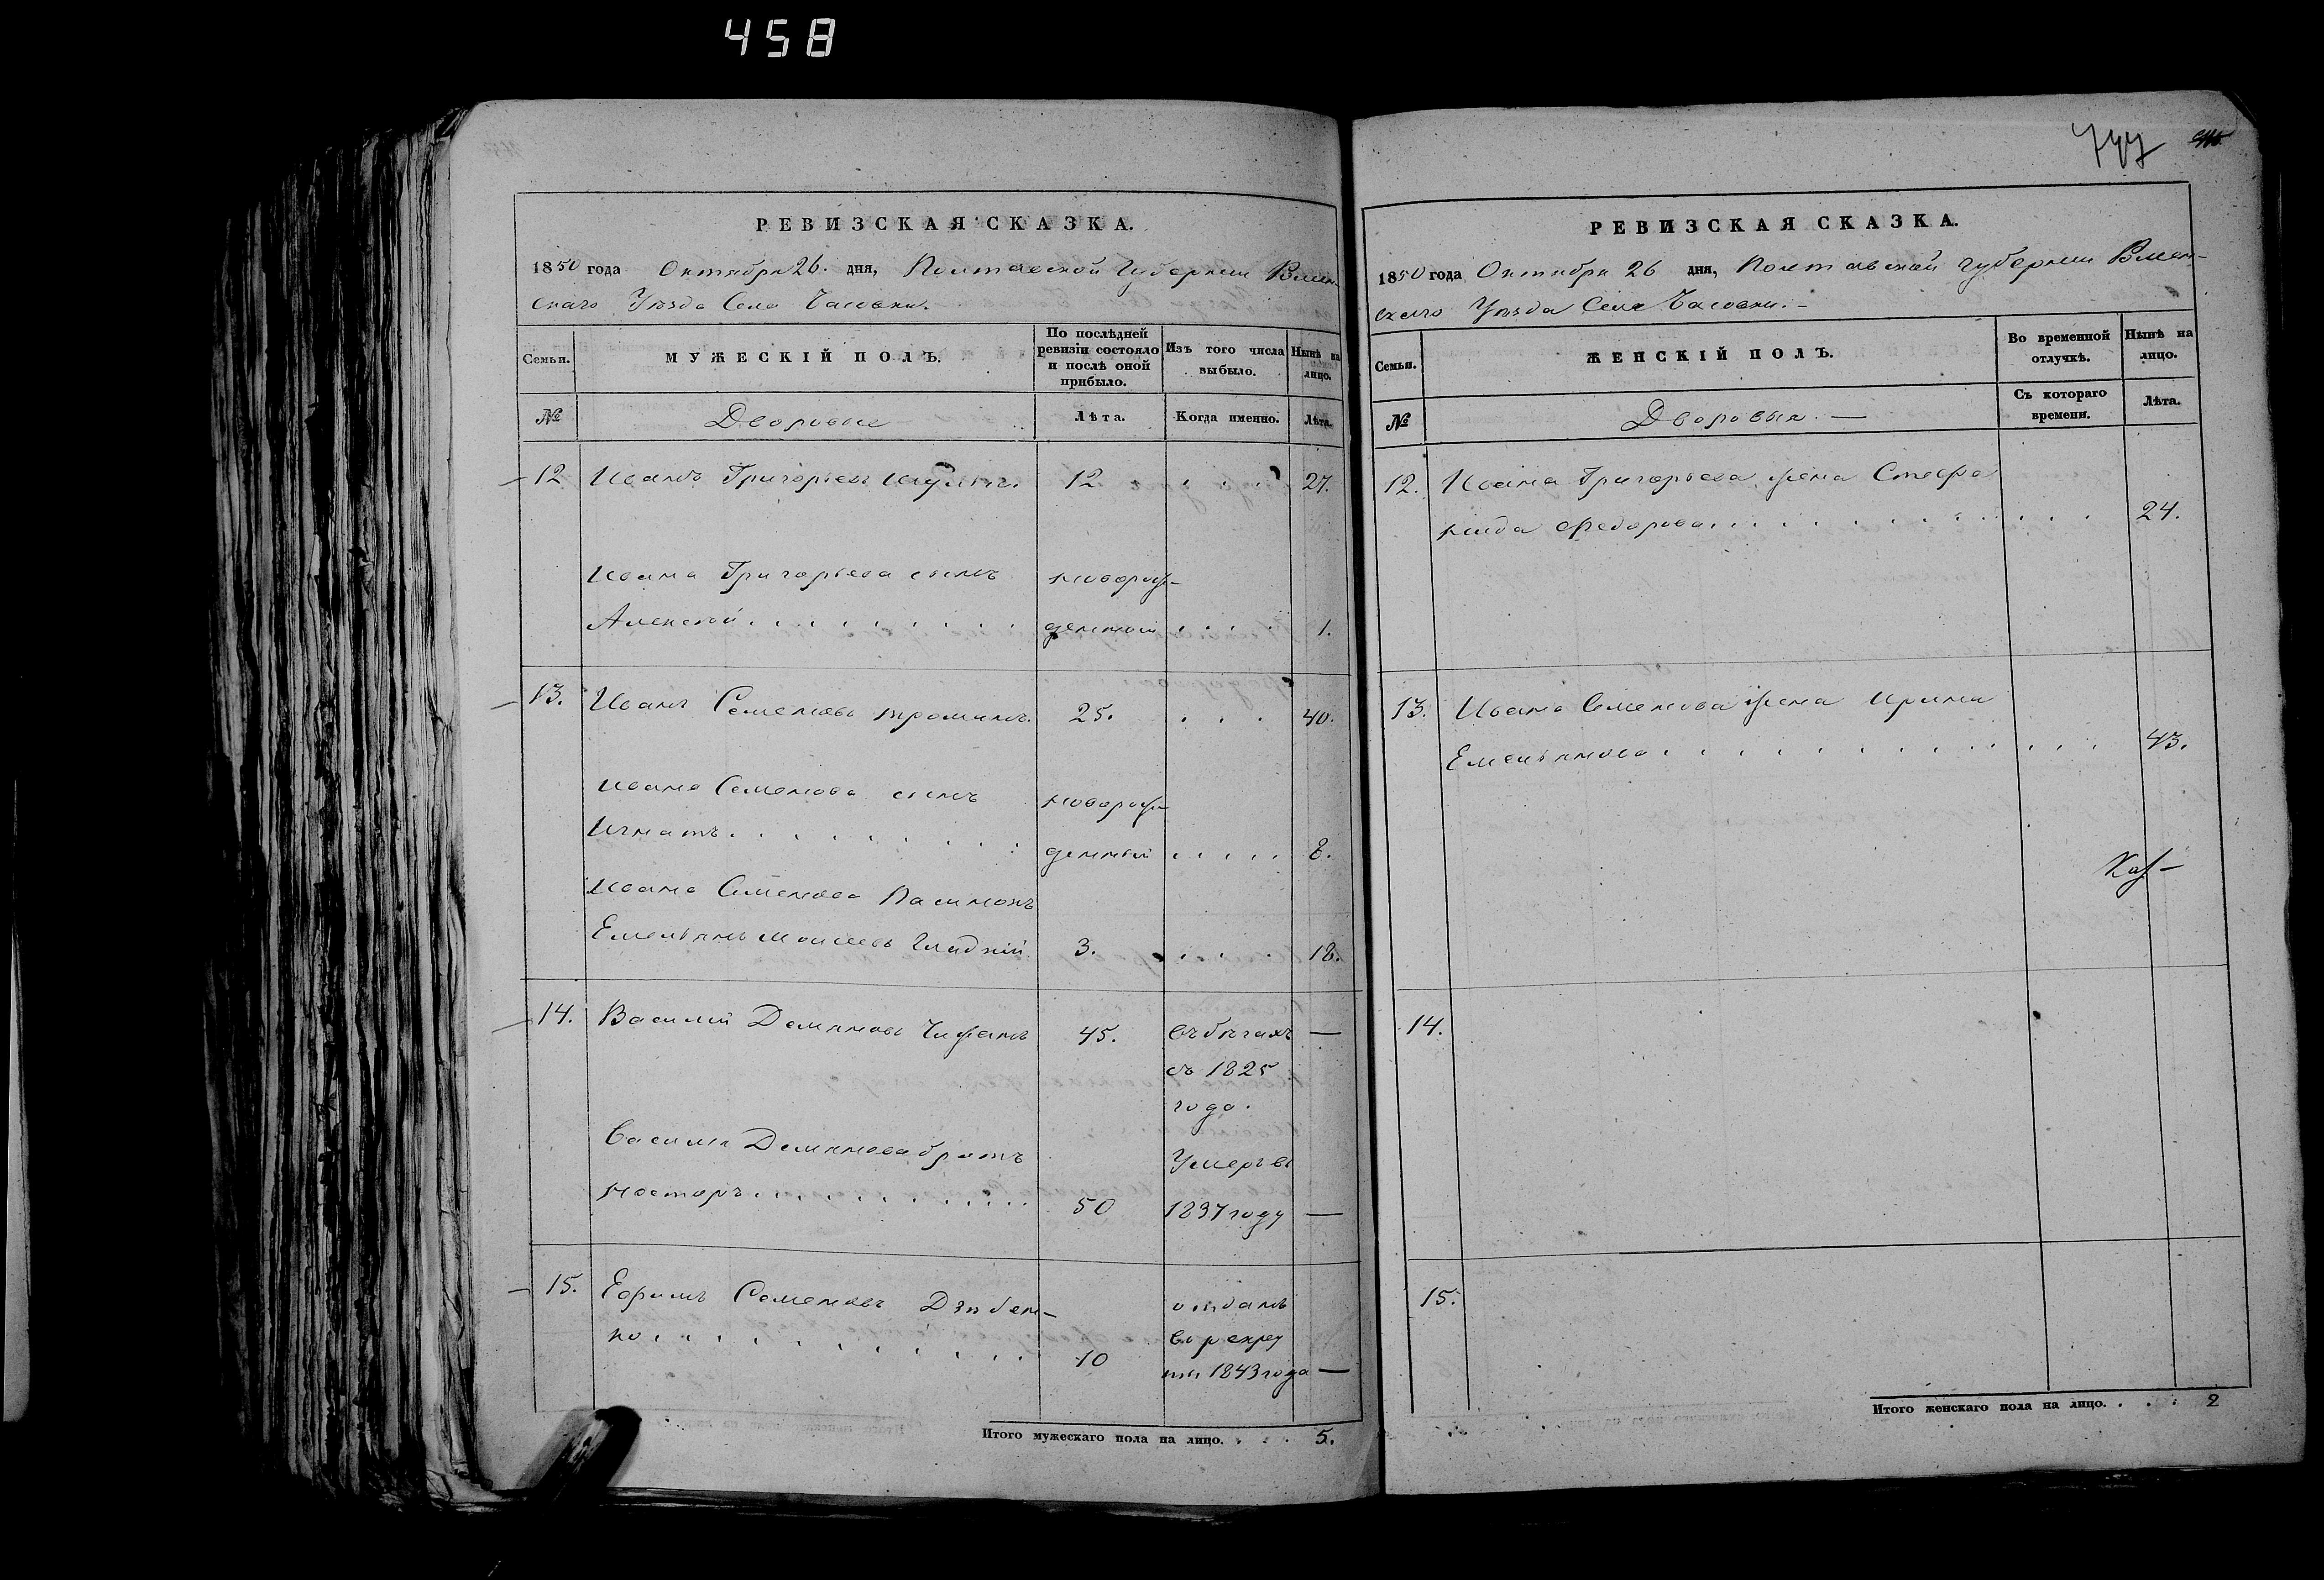 458
РЕВИЗСКАЯ СКАЗКА.
1850 года Октября 26. дня, Полтавской Губернии Ромен-
скаго Уѣзда Села Часовки.
Семьи.
МУЖЕСКІЙ ПОЛЪ.
По послѣдней ревизіи состояло и послѣ оной прибыло.
Изъ того числа выбыло.
Нынѣ на лицо.
№
Дворовые
Лѣта.
Когда именно.
Лѣта.
12 Иванъ Григорьевъ 12 . . . 27.
Ивана Григорьева сынъ новорож-
Алексѣй . . . . . . . . . денный . . . . 1.
13. Иванъ Семеновъ 25. . . . 40.
Ивана Семенова сынъ новорож-
Игнатъ . . . . . . . . . денный . . . . . 8.
Ивана Семенова пасинокъ
Емельянъ Моисеевъ Гладкій 3. . . . . 18.
14. Василій Демяновъ 45. въ бѣгахъ —
съ 1825
года.
Василія Демянова братъ Умеръ въ
Несторъ . . . . . . . . . . . 50 1837 году —
15. Ефимъ Семеновъ Дзюбен-
ко . . . . . . . . . . . 10
отданъ
въ рекру
ты 1843 года —
Итого мужескаго пола на лицо. . . . . 5.
747
РЕВИЗСКАЯ СКАЗКА.
1850 года Октября 26 дня, Полтавской губернии Ромен-
скаго Уѣзда Села Часовки. —
Семьи.
ЖЕНСКІЙ ПОЛЪ.
Во временной отлучкѣ.
Нынѣ на лицо.
№
Дворовыя. —
Съ котораго времени.
Лѣта.
12. Ивана Григорьева жена Стефа
нида Федорова . . . . . . . . . . . . . . 24.
13. Ивана Семенова жена Ирина
Емельянова . . . . . . . . . . . . . . 43.
14.
15.
Итого женскаго пола на лицо. . . . 2